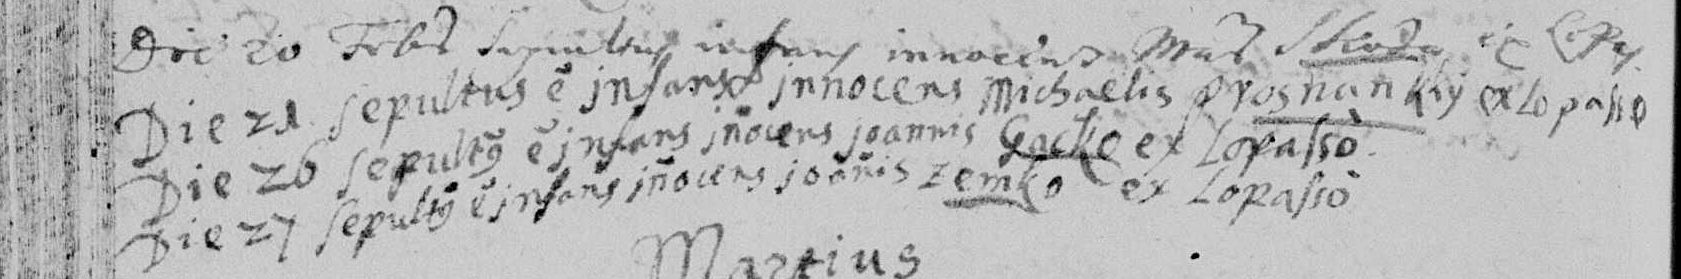 Die 20 Febr sepultus infans innocens ex Lopas
Die 21 sepultus ē jnfans jnnocens Michaelis Prosnanskÿ ex Lopasso
Die 26 sepultꝰ ē jnfans jñocens joannis Gacke ex Lopassò
Die 27 sepultꝰ ē jnfans jñocens joãnis Zemko ex Lopassò
Martius